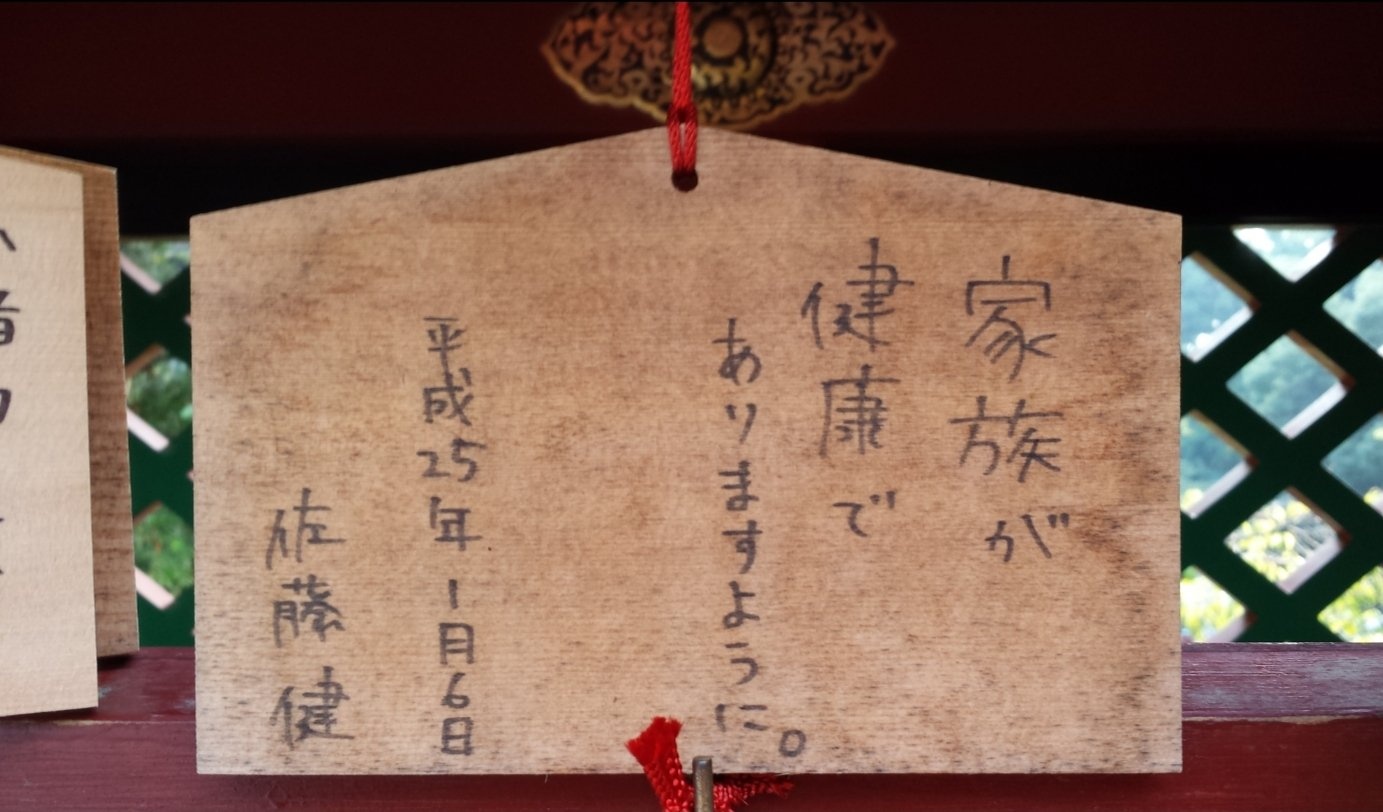 家族が
健康で
ありますように。
平成25年1月6日
佐藤健